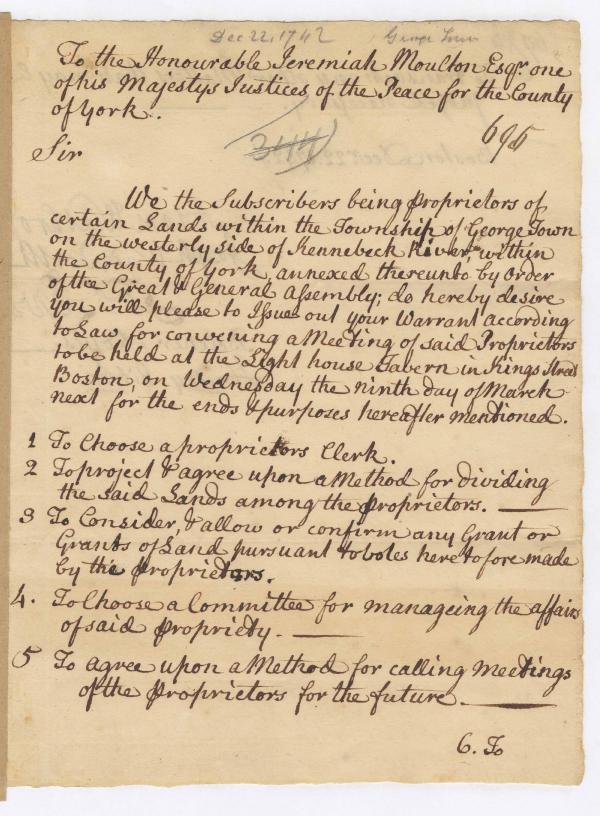 Dec 22, 1742 George Town
To the Honourable Jeremiah Moulton Esqr. one
of his Majestys Justices of the Peace for the County
of York.
695
344
Sir
We the Subscribers being Proprietors of
certain Lands within the Township of George Town
on the westerly side of Kennebeck River, within
the County of York, annexed thereunto by Order
of the Great & General Assembly; do hereby desire
you will please to Issue out your Warrant according
to Law for convening a Meeting of said Proprietors
to be held at the Light house Tavern in Kings Street
Boston, on Wednesday the ninth day of March
next for the ends & purposes hereafter mentioned.
1 To Choose a proprietors Clerk.
2 To project & agree upon a Method for dividing
the said Lands among the Proprietors.
3 To Consider, & allow or confirm any Grant or
Grants of Land pursuant to votes heretofore made
by the Proprietors.
4. To Choose a Committee for manageing the affairs
of said Propriety.
5 To agree upon a Method for calling Meetings
of the Proprietors for the future.
6. To